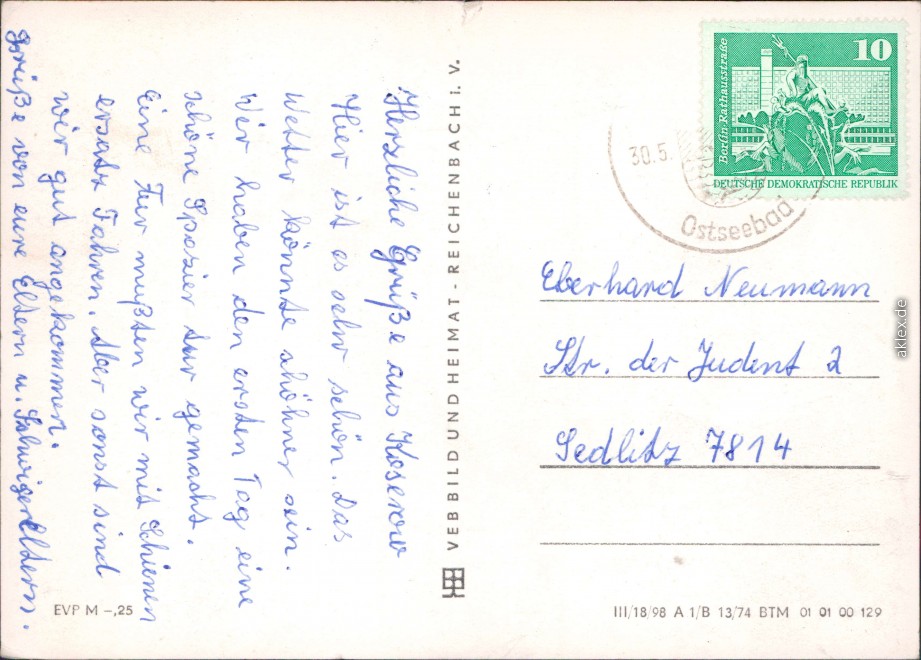 Herzliche Grüße aus Koserow
Hier ist es sehr schön. Das
Wetter könnte schöhner sein.
Wir haben den ersten Tag eine
schöne Spazier tur gemacht.
Eine Tur mußten wir mit Schienen
ersatz Fahren. Aber sonst sind
wir gut angekommen.
Grüße von eure Eltern u. SchwigerEltern.
EVP M –,25
VEB BILD UND HEIMAT - REICHENBACH I. V.
10
Berlin-Rathausstraße
DEUTSCHE DEMOKRATISCHE REPUBLIK
30.5.
Ostseebad
Eberhard Neumann
Str. der Judent 2
Sedlitz 7814
III/18/98 A 1/B 13/74 BTM 01 01 00 129
aklex.de